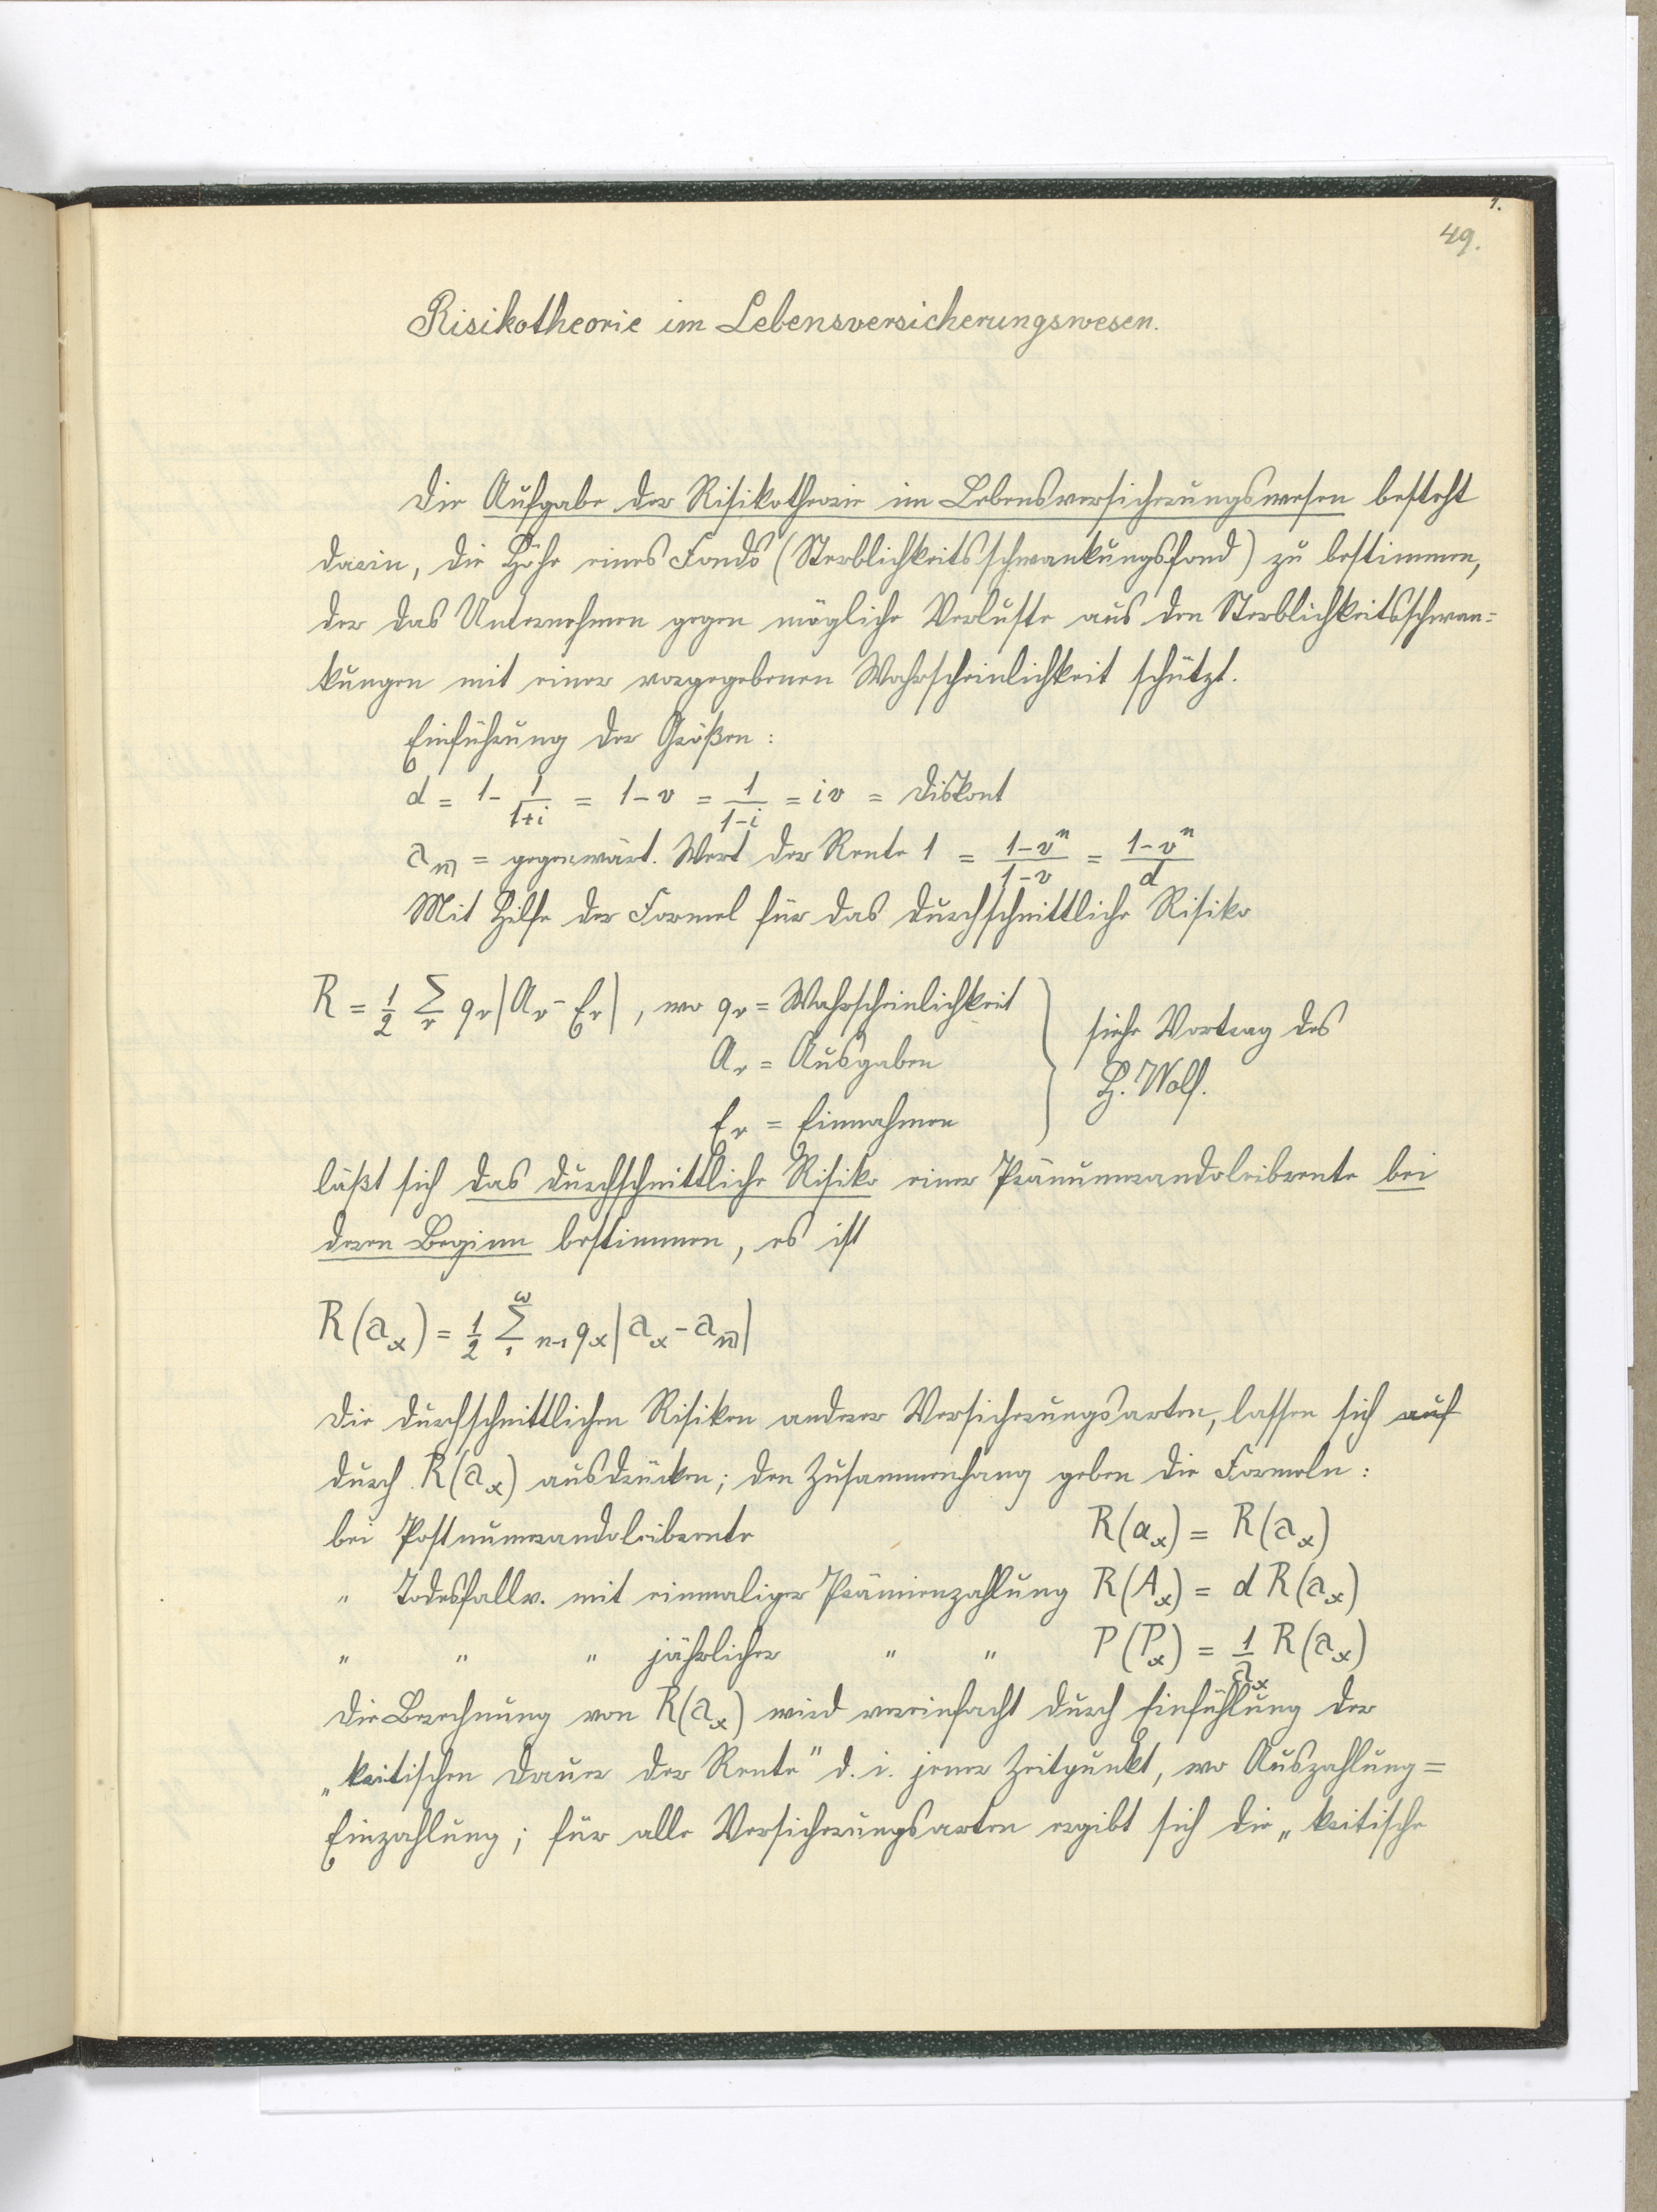 1.
49.
Risikotheorie im Lebensversicherungswesen.
Die Aufgabe der Risikotheorie im Lebensversicherungswesen besteht
darin, die Höhe eines Fonds (Sterblichkeitsschwankungsfond) zu bestimmen,
der das Unternehmen gegen mögliche Verluste aus den Sterblichkeitsschwan=
kungen mit einer vorgegebenen Wahrscheinlichkeit schützt.
Einführung der Größen:
d = 1 - 1/(1+i) = 1 - v = 1/(1-i) = iv = Diskont
a_n̅| = gegenwärt. Wert der Rente 1 = (1-vⁿ)/(1-v) = (1-vⁿ)/d
Mit Hilfe der Formel für das durchschnittliche Risiko
R = 1/2 Σ_r q_r |A_r - E_r|, wo q_r = Wahrscheinlichkeit
A_r = Ausgaben
E_r = Einnahmen
siehe Vortrag des
H. Wolf.
läßt sich das durchschnittliche Risiko einer Pränumerandoleibrente bei
deren Beginn bestimmen, es ist
R(a_x) = 1/2 Σ_1^ω n-1 q_x |a_x - a_n̅||
Die durchschnittlichen Risiken anderer Versicherungsarten, lassen sich auf
durch R(a_x) ausdrücken; den Zusammenhang geben die Formeln:
bei Postnumerandoleibrente R(α_x) = R(a_x)
" Todesfallv. mit einmaliger Prämienzahlung R(A_x) = d R(a_x)
" " " jährlicher " " P(P_x) = 1/a_x R(a_x)
Die Berechnung von R(a_x) wird vereinfacht durch Einfühlung der
„kritischen Dauer der Rente" d. i. jener Zeitpunkt, wo Auszahlung =
Einzahlung; für alle Versicherungsarten ergibt sich die „kritische